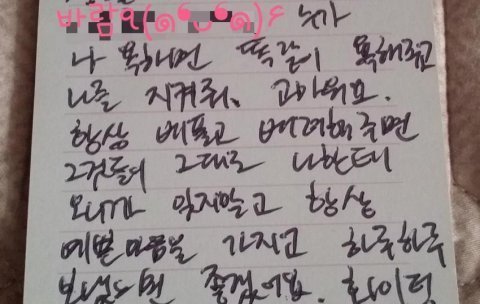 바람 누가
나 욕하면 똑같이 욕해주고
나를 지켜줘. 고마워요.
항상 베풀고 배려해주면
그것들이 그대로 나한테
오니까 잊지말고 항상
예쁜마음을 가지고 하루하루
보냈으면 좋겠어요. 화이터